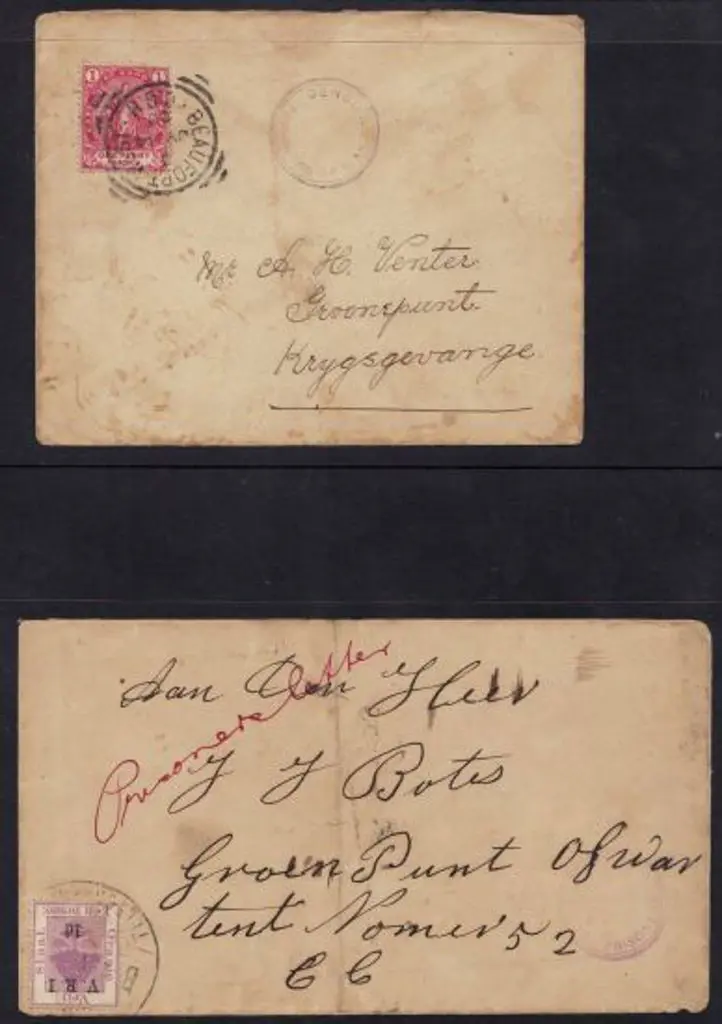 1 1
BEAUFORT
Mr A. H. Venter
Groonepunt
Krygsgevange
Prisoners letter
Aan Den Heer
J J Botes
Groen Punt Ofwar
tent Nomer 52
C C
V R I
1d